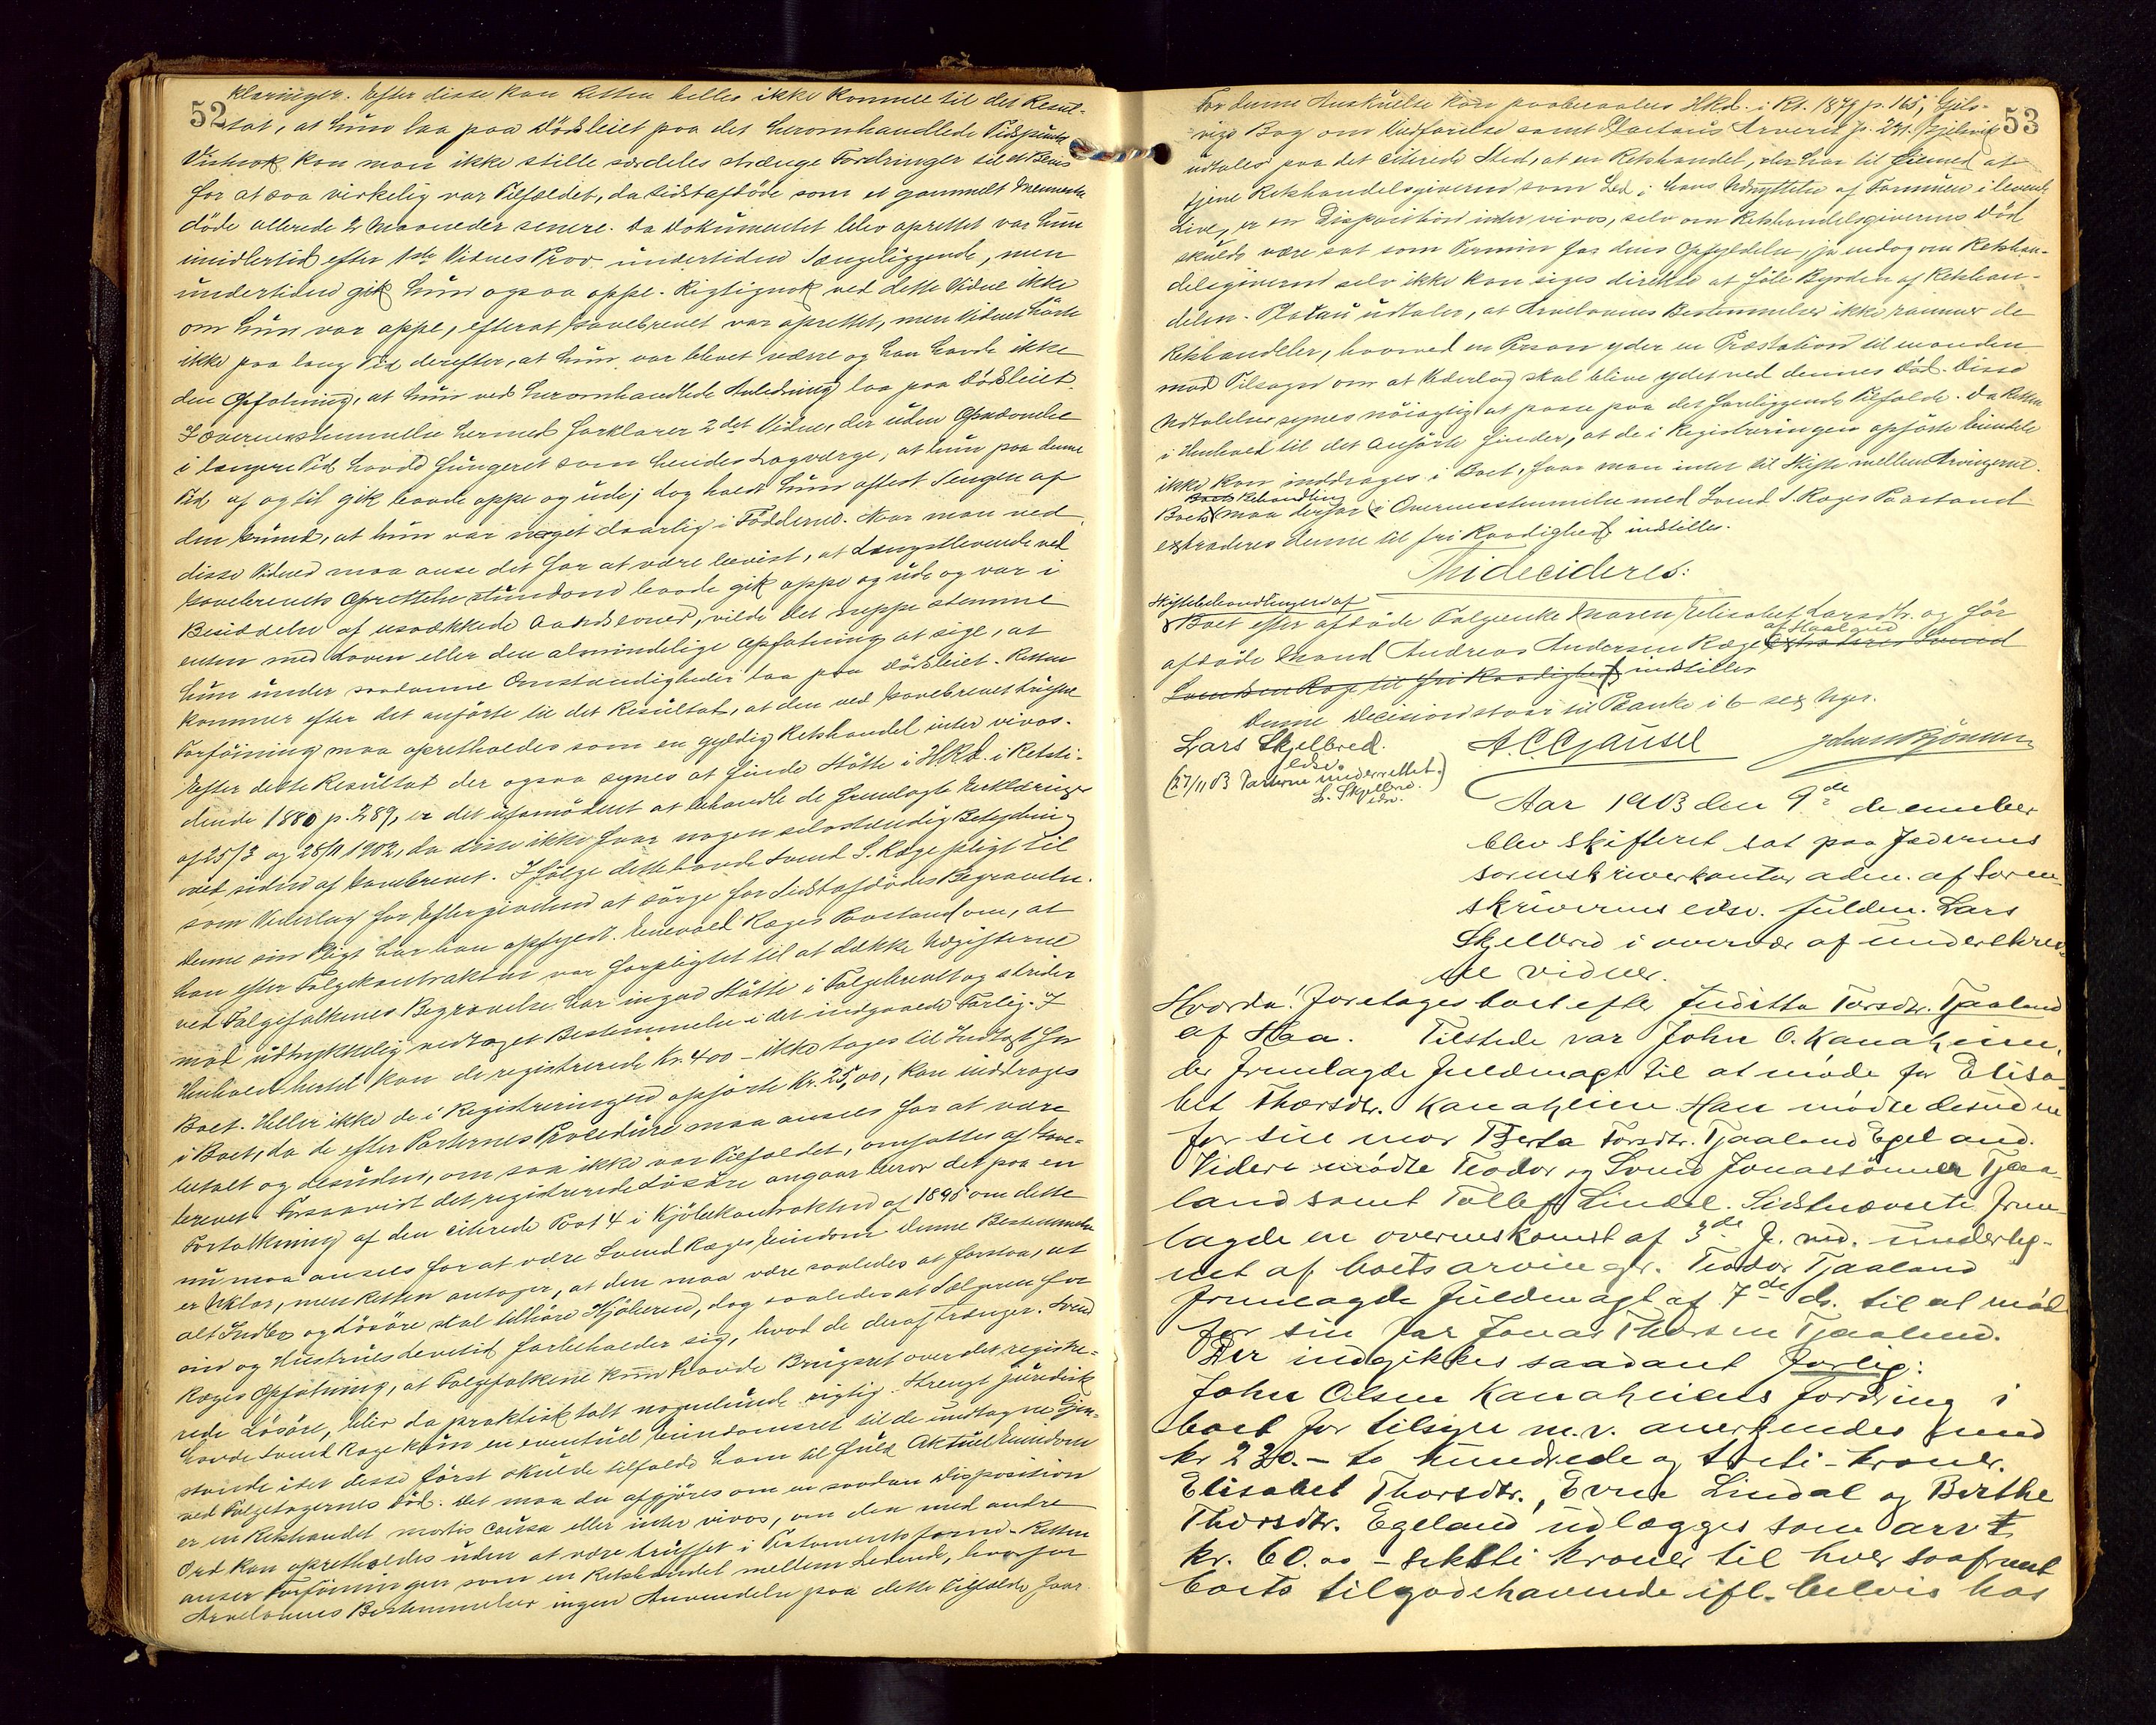 52
klaringer. Efter disse kan Retten heller ikke komme til det Resul-
tat, at hun laa paa Dødsleiet paa det heromhandlede Tidspunkt.
Vistnok kan man ikke stille særdeles strænge Fordringer til et Bevis
for at saa virkelig var Tilfældet, da sidstafdøde som et gammelt Menneske
døde allerede 2 Maaneder senere. Da Dokumentet blev oprettet var hun
imidlertid efter 1ste Vidnes Prov undertiden sængeliggende, men
undertiden gik hun ogsaa oppe. Rigtignok ved dette Vidne ikke
om hun var oppe, efterat Gavebrevet var oprettet, men Vidnet hørte
ikke paa lang Tid derefter, at hun var blevet værre og han havde ikke
den Opfatning, at hun ved heromhandlede Anledning laa paa Dødsleiet.
I Overensstemmelse hermed forklarer 2det Vidne, der uden Opnævnelse
i længere Tid havde fungeret som hendes Lagværge, at hun paa denne
Tid af og til gik baade oppe og ude; dog holdt hun oftest Sengen af
den Grund, at hun var meget daarlig i Fødderne. Naar man ved
disse Vidner maa anse det for at være bevist, at Længstlevende ved
Gavebrevets Oprettelse stundom baade gik oppe og ude og var i
Besiddelse af usvækkede Aandsevner, vilde det neppe stemme
enten med Loven eller den almindelige Opfatning at sige, at
hun under saadanne Omstændigheder laa paa Dødsleiet. Retten
kommer efter det anførte til det Resultat, at den ved Gavebrevet trufne
Forføining maa opretholdes som en gyldig Retshandel inter vivos.
Efter dette Resultat der ogsaa synes at finde Støtte i HRd. i Retsti-
dende 1880 p. 289, er det ufornødent at behandle de fremlagte Erklæringer
af 25/3 og 28/11 1902, da disse ikke faar nogen selvstændig Betydning
ved siden af Gavebrevet. Ifølge dette havde Svend S. Ræge pligt til
som Vederlag for Eftergivelsen at sørge for Sidstafdødes Begravelse.
Denne sin Pligt har han opfyldt. Enevald Ræges Paastand om, at
han efter Folgekontrakten var forpligtet til at dække Udgifterne
ved Folgefolkenes Begravelse har ingen Støtte i Folgebrevet og strider
mod udtrykkelig vedtaget Bestemmelse i det indgaaede Forlig. I
Henhold hertil kan de registrerede Kr. 400 – ikke tages til Indtægt for
Boet. Heller ikke de i Registreringen opførte Kr. 25,00, kan inddrages
i Boet, da de efter Parternes Procedure maa ansees for at være
betalt og desuden, om saa ikke var Tilfældet, omfattes af Gave-
brevet. Forsaavidt det registrerede Løsøre angaar beror det paa en
Fortolkning af den citerede Post 4 i Kjøbekontrakten af 1895 om dette
nu maa ansees for at være Svend Ræges Eiendom. Denne Bestemmelse
er uklar, men Retten antager, at den maa være saaledes at forstaa, at
alt Indbo og Løsøre skal tilhøre Kjøberen, dog saaledes at Sælgeren for
sin og Hustrus Levetid forbeholder sig, hvad de deraf trænger. Svend
Ræges Opfatning, at Folgefolkene kun havde Brugsret over det registre-
rede Løsøre, blir da praktisk talt nogenlunde rigtig. Strengt juridisk
havde Svend Ræge kun en eventuel Eiendomsret til de undtagne Gjen-
stande idet disse først skulde tilfalde ham til fuld Aktuel Eiendom
ved Folgetagernes Død. Det maa da afgjøres om en saadan Disposition
er en Retshandel mortis causa eller inter vivos, om den med andre
Ord kan opretholdes uden at være truffet i Testaments form. Retten
anser Forføiningen som en Retshandel mellem Levende, hvorfor
Arvelovens Bestemmelser ingen Anvendelse paa dette Tilfælde faar.
53
For denne Anskuelse kan paaberaabes HRd. i Rt. 1879 p. 165, Gjels-
vigs Bog om Vildfarelse samt Platous Arveret p. 231. Gjelsvik
udtaler paa det citerede Sted, at en Retshandel, der har til Øiemed at
tjene Retshandelsgiveren som Led i hans Udnyttelse af Formuen i levende
Live, er en Disposition inter vivos, selv om Retshandelsgiverens Død
skulde være sat som Termin for dens Opfyldelse, ja endog om Retshan-
delsgiveren selv ikke kan siges direkte at føle Byrden af Retshan-
delen. Platou udtaler, at Arvelovens Bestemmelser ikke rammer de
Retshandeler, hvorved en Person yder en Præstation til en anden
mod Tilsagn om at Vederlag skal blive ydet ved dennes Død. Disse
Udtalelser synes nøiagtig at passe paa det foreliggende Tilfælde. Da Retten
i Henhold til det Anførte finder, at de i Registreringen opførte Eiendele
ikke kan inddrages i Boet, faar man intet til Skifte mellem Arvingerne.
Boets Behandling
Boet maa derfor i Overensstemmelse med Svend S. Ræges Paastand
extraderes denne til fri Raadighed indstilles.
Thi decideres:
Skiftebehandlingen af
Boet efter afdøde Folgeenke Maren Elisabet Larsdtr. og før
afdøde Mand Andreas Andersen Ræge af Haaland extraderes Svend
Svendsen Ræge til fri Raadighed indstilles
Denne Decision staar til Paanke i 6 – sex Uger.
Lars Skjelbred. A. C. Gausel Johan Bjønnes
edsv.
(27/11 03 Parterne underrettet.)
L. Skjelbred.
edsv.
Aar 1903 den 9de december
blev skifteret sat paa Jæderens
sorenskriverkontor adm. af soren-
skriverens edsv. fuldm. Lars
Skjelbred i overvær af underskrev-
ne vidner.
Hvorda! Foretages boet efter Juditta Torsdtr. Tjaaland
af Haa. Tilstede var John O. Kanaheim,
der fremlagde fuldmagt til at møde for Elisa-
bet Thorsdtr. Kanaheim. Han mødte desuden
for sin mor Berta Torsdtr. Tjaaland Egeland.
Videre mødte Teodor og Svend Jonassønner Tjaa-
land samt Tollef Lindal. Sidstnævnte frem-
lagde en overenskomst af 3de f. md. underteg-
net af boets arvinger. Teodor Tjaaland
fremlagde fuldmagt af 7de ds. til at møde
for sin far Jonas Thorsen Tjaaland.
Der indgikkes saadant forlig:
John Olsen Kanaheims fordring i
boet for tilsyn m.v. anerkjendes med
kr 220.– to hundrede og tyve – kroner.
Elisabet Thorsdtr., Evne Lindal og Berthe
Thorsdtr. Egeland udlægges som arv
kr. 60.00 – seksti kroner til hver saafremt
boets tilgodehavende ifl. belvis hos